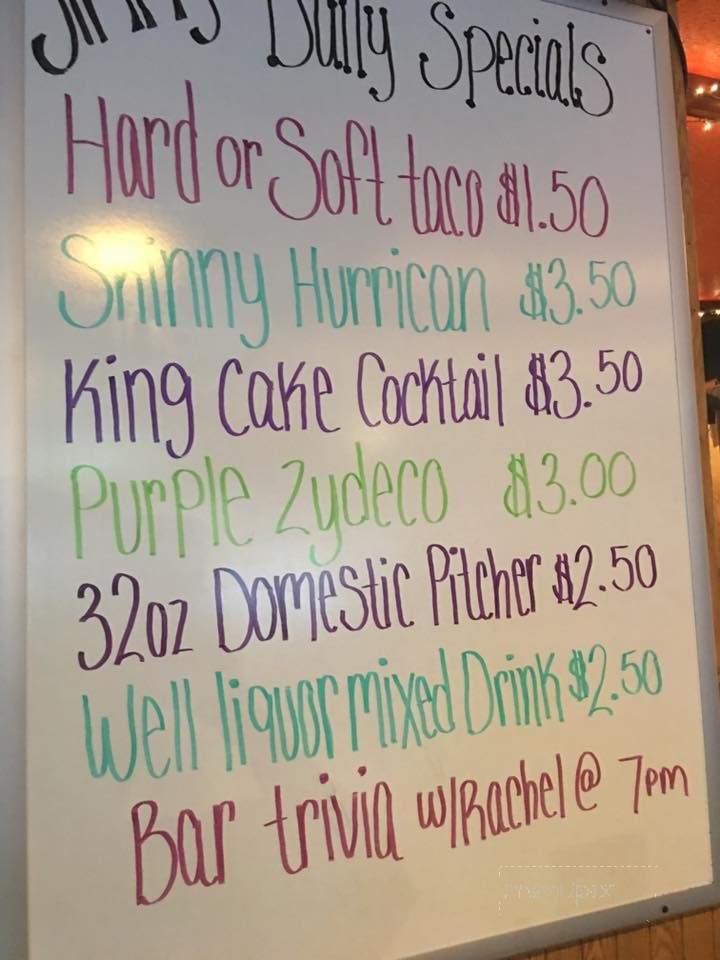 Daily Specials
Hard or Soft taco $1.50
Shinny Hurrican $3.50
King Cake Cocktail $3.50
Purple Zydeco $3.00
32oz Domestic Pitcher $2.50
Well liquor mixed Drink $2.50
Bar trivia w/Rachel @ 7pm